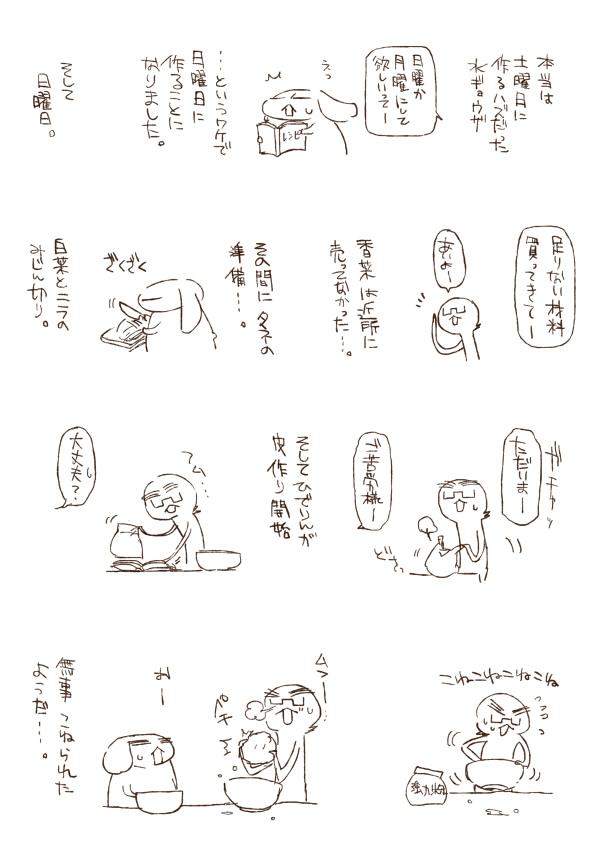 本当は
土曜日に
作るハズだった
水ギョウザ
日曜か
月曜にして
欲しいってー
えっ
レシピ
…というワケで
日曜日に
作ることに
なりました。
そして
日曜日。
足りない材料
買ってきてー
あいよー
香菜は近所に
売ってなかった…。
その間にタネの
準備…。
ざくざく
白菜とニラの
みじん切り。
ガチャッ
ただいまー
ご苦労様ー
どさっ
そしてひでりんが
皮作り開始
フム…
大丈夫?
こねこねこねこね
フゴゴッ
強力粉
ムフー
ペチ
おー
無事こねられた
ようだ…。